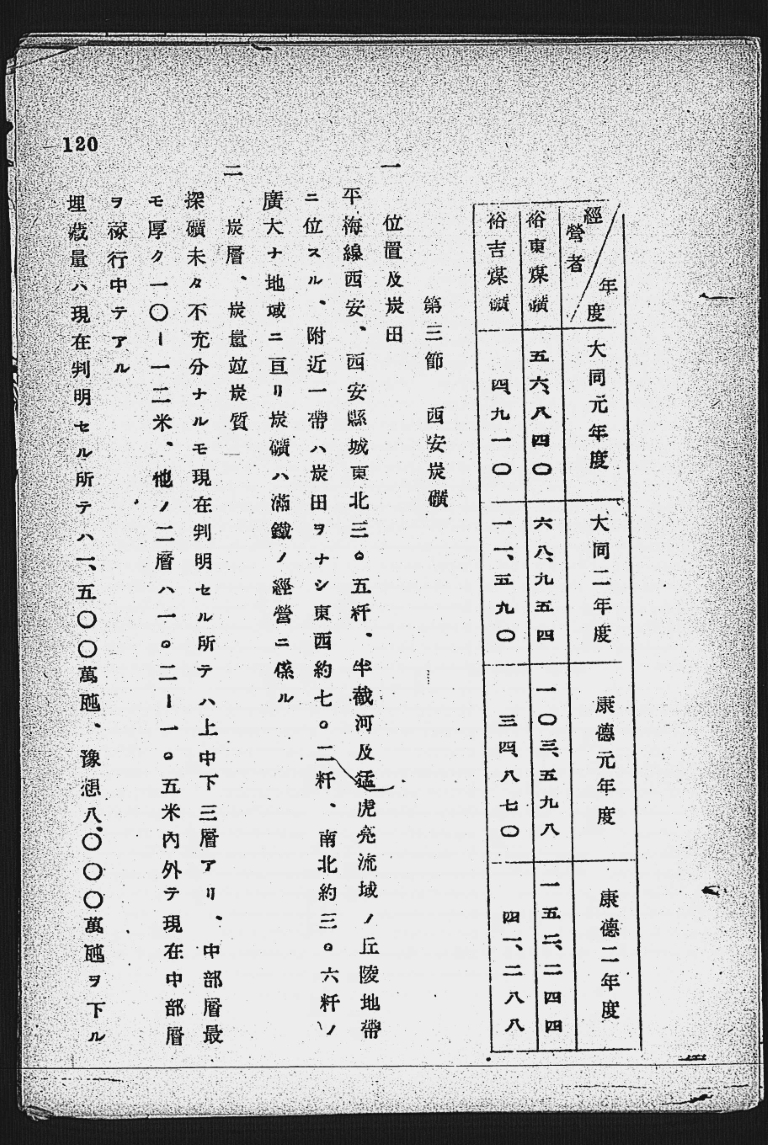 經營者／年度
大同元年度
大同二年度
康德元年度
康德二年度
裕東煤礦
五六、八四〇
六八、九五四
一〇三、五九八
一五二、二四四
裕吉煤礦
四、九一〇
一一、五九〇
三四、八七〇
四一、二八八
第三節 西安炭礦
一 位置及炭田
平梅線西安、西安縣城東北三。五粁、半截河及猛虎亮流域ノ丘陵地帶
ニ位スル、附近一帶ハ炭田ヲナシ東西約七。二粁、南北約三。六粁ノ
廣大ナ地域ニ亘リ炭礦ハ滿鐵ノ經營ニ係ル
二 炭層、炭量竝炭質
探礦未タ不充分ナルモ現在判明セル所テハ上中下三層アリ、中部層最
モ厚ク一〇ー一二米、他ノ二層ハ一。二ー一。五米內外テ現在中部層
ヲ稼行中テアル
埋藏量ハ現在判明セル所テハ一、五〇〇萬瓲、豫想八、〇〇〇萬瓲ヲ下ル
120